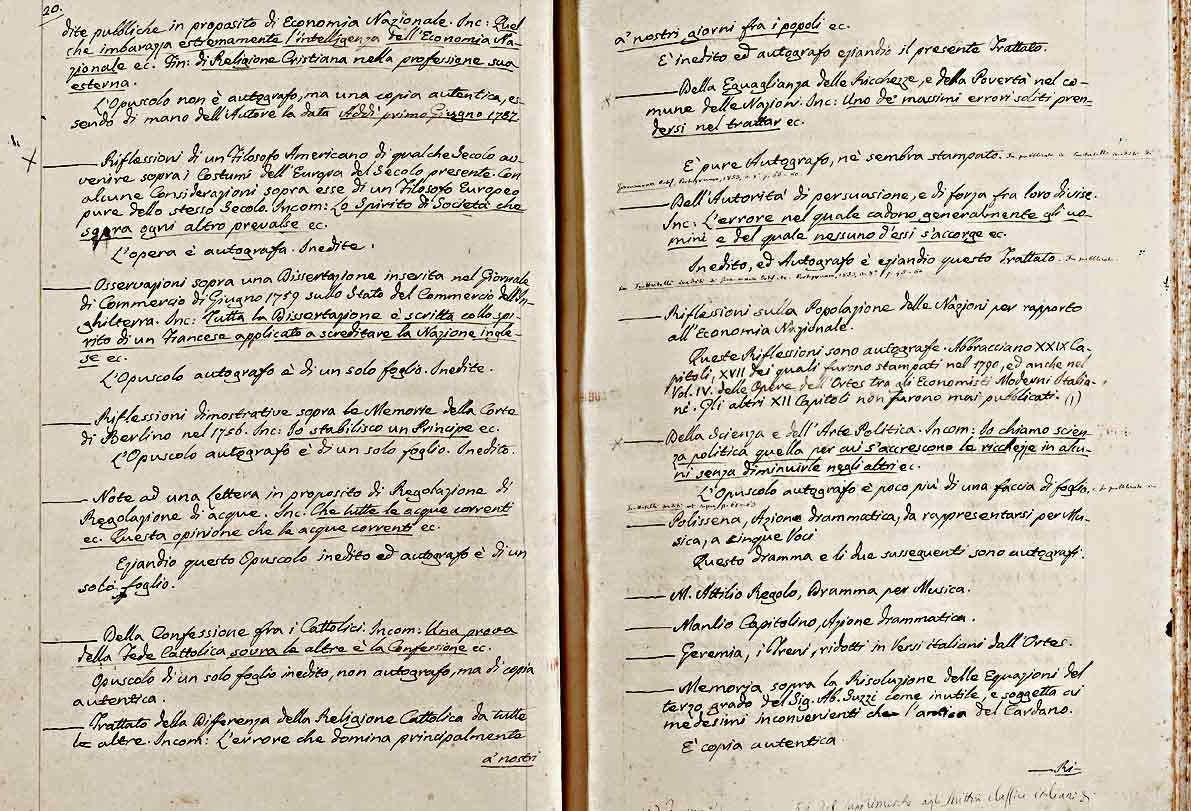 20.
dite pubbliche in proposito di Economia Nazionale. Inc: Quel
che imbarazza estremamente l'intelligenza dell'Economia Na-
zionale ec. Fin: di Religione Cristiana nella professione sua
esterna.
L'Opuscolo non è autografo, ma una copia autentica, es-
sendo di mano dell'Autore la data Addì primo Giugno 1787
Riflessioni di un Filosofo Americano di qualche Secolo av-
venire sopra i Costumi dell'Europa del Secolo presente. Con
alcune Considerazioni sopra esse di un Filosofo Europeo
pure dello stesso Secolo. Incom: Lo Spirito di Società che
sopra ogni altro prevalse ec.
L'opera è autografa. Inedite.
Osservazioni sopra una Dissertazione inserita nel Giornale
di Commercio di Giugno 1759 sullo Stato del Commercio dell'In-
ghilterra. Inc: Tutta la Dissertazione è scritta collo spi-
rito di un Francese applicato a screditare la Nazione ingle-
se ec.
L'Opuscolo autografo è di un solo foglio. Inedite.
Riflessioni dimostrative sopra le Memorie della Corte
di Berlino nel 1756. Inc: Io stabilisco un Principe ec.
L'Opuscolo autografo è di un solo foglio. Inedito.
Note ad una Lettera in proposito di Regolazione di
Regolazione di acque. Inc: Che tutte le acque correnti
ec. Questa opinione che le acque correnti ec.
Eziandio questo Opuscolo inedito ed autografo è di un
solo foglio.
Della Confessione fra i Cattolici. Incom: Una prova
della Fede Cattolica sovra le altre è la Confessione ec.
Opuscolo di un solo foglio inedito, non autografo, ma di copia
autentica.
Trattato della Diferenza della Religione Cattolica da tutte
le altre. Incom: L'errore che domina principalmente
a' nostri
a' nostri giorni fra i popoli ec.
E' inedito ed autografo eziandio il presente Trattato.
Della Eguaglianza delle Ricchezze, e della Povertà nel co-
mune delle Nazioni. Inc: Uno de' massimi errori soliti pren-
dersi nel trattar ec.
E' pure Autografo, nè sembra stampato.
Dell'Autorità di persuasione, e di forza fra loro divise.
Inc: L'errore nel quale cadono generalmente gli uo-
mini e del quale nessuno d'essi s'accorge ec.
Inedito, ed Autografo è eziandio questo Trattato.
Riflessioni sulla Popolazione delle Nazioni per rapporto
all'Economia Nazionale.
Queste Riflessioni sono autografe. Abbracciano XXIX Ca-
pitoli, XVII dei quali furono stampati nel 1790, ed anche nel
Vol. IV. delle Opere dell'Ortes tra gli Economisti Moderni Italia-
ni. Gli altri XII Capitoli non furono mai pubblicati. (1)
Della Scienza e dell'Arte Politica. Incom: Io chiamo scien-
za politica quella per cui s'accrescono le ricchezze in alcu-
ni senza diminuirle negli altri ec.
L'Opuscolo autografo è poco più di una faccia di foglio.
Polissena, Azione drammatica, da rappresentarsi per Mu-
sica, a cinque Voci
Questo dramma e li due susseguenti sono autografi.
M. Attilio Regolo, Dramma per Musica.
Manlio Capitolino, Azione drammatica.
Geremia, i Treni, ridotti in Versi italiani dall'Ortes.
Memoria sopra la Risoluzione delle Equazioni del
terzo grado del Sig. Ab. Suzzi come inutile, e soggetta ai
medesimi inconvenienti che l'antica del Cardano.
E' copia autentica.
Ri-